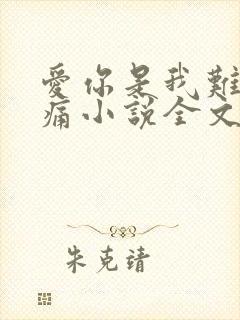 愛你是我難
痛小說全文
朱克靖